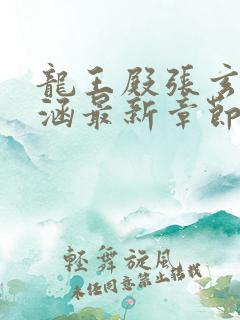 龍王殿張玄
涵最新章節
輕舞旋風
未任同意禁止轉載